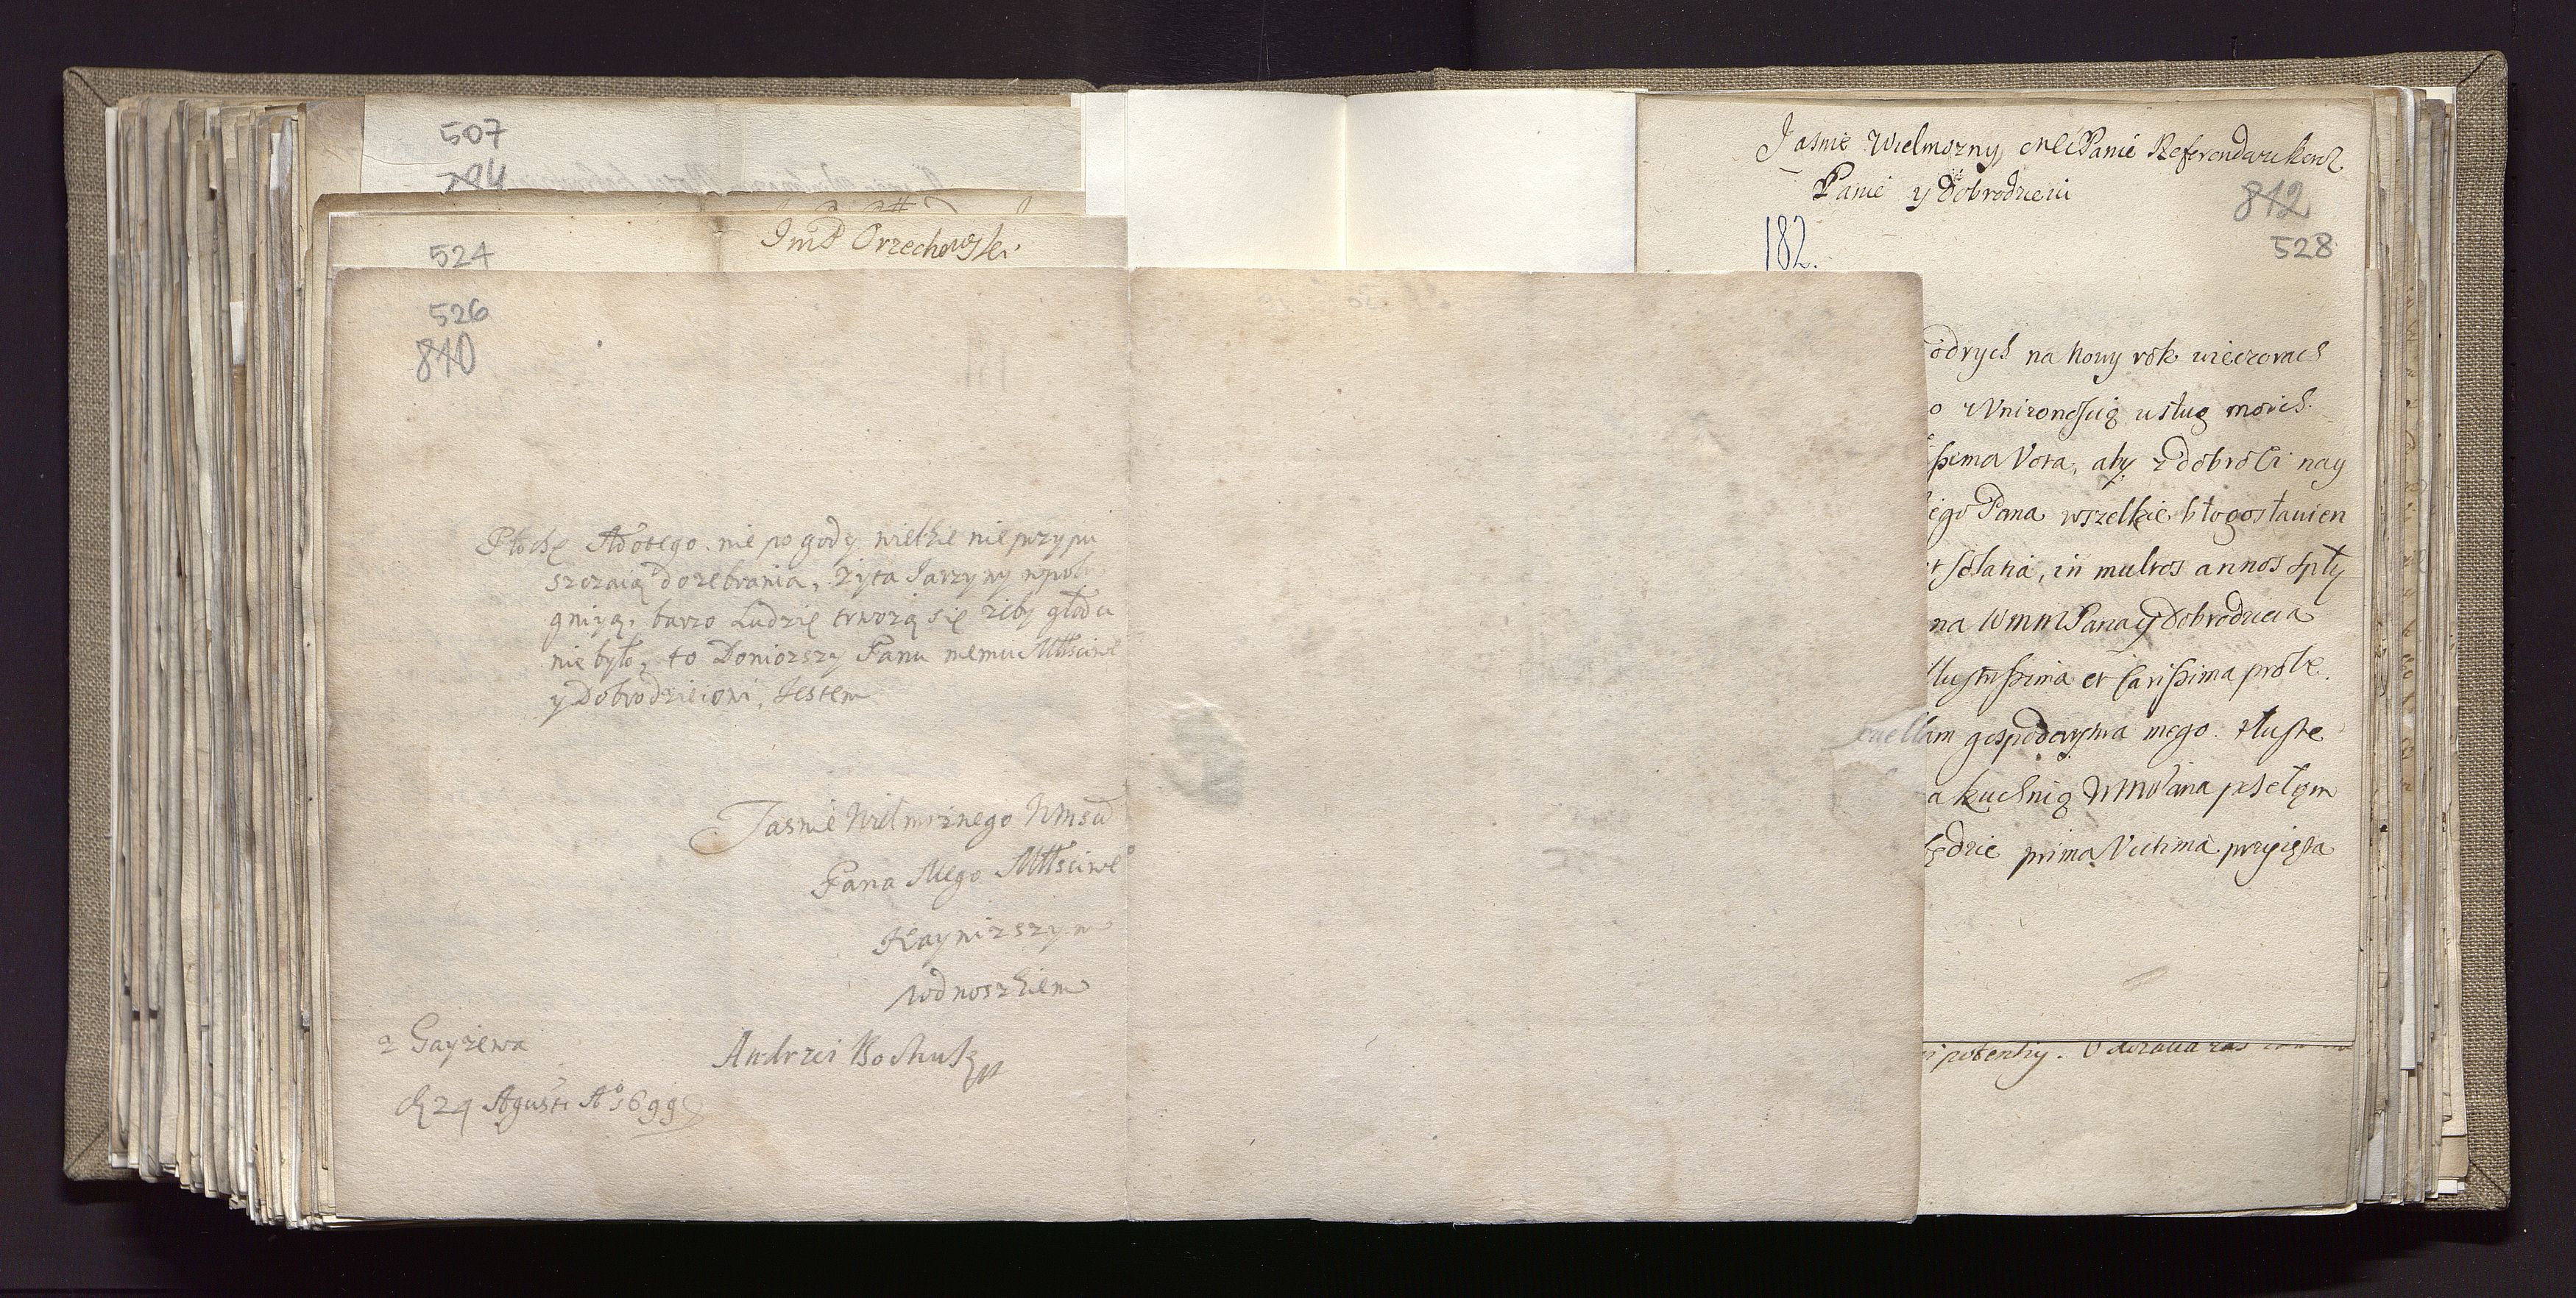 507
794
ImP Orzechowski
524
526
840
Płochę Adotego. nie pogody wielkie nie przypu
szczaią do zebrania, Zyta Jarzyny wpolu
gniyą, barzo Ludzie trwozą się zeby głodu
nie było, to Doniozszy Panu memu Młłsciwe
y Dobrodzieiowi, Jestem
Jasnie Wielmoznego Wmsci
Pana Mego Młłsciwe
Naynizszym
podnoszkiem
z Gayzewa
Andrzei Bochusz
d 24 Agusti Ao 1699
Jasnie Wielmozny, Mci Panie Referendarzu
Panie y Dobrodzieiu
842
182.
528
odrych na nowy rok wieczorach
o Vnizonością usług moich.
ssima Vota, aby z dobroti nay
ego Pana wszelkie błogosławien
solatia, in multos annos spły
na WMM Pana y Dobrodzieia
llustrissima et Carissima prole.
uellam gospodarstwa mego. tluste
a kuchnię WMMPana posełam
ędzie prima Victima przyięta
potentiy.